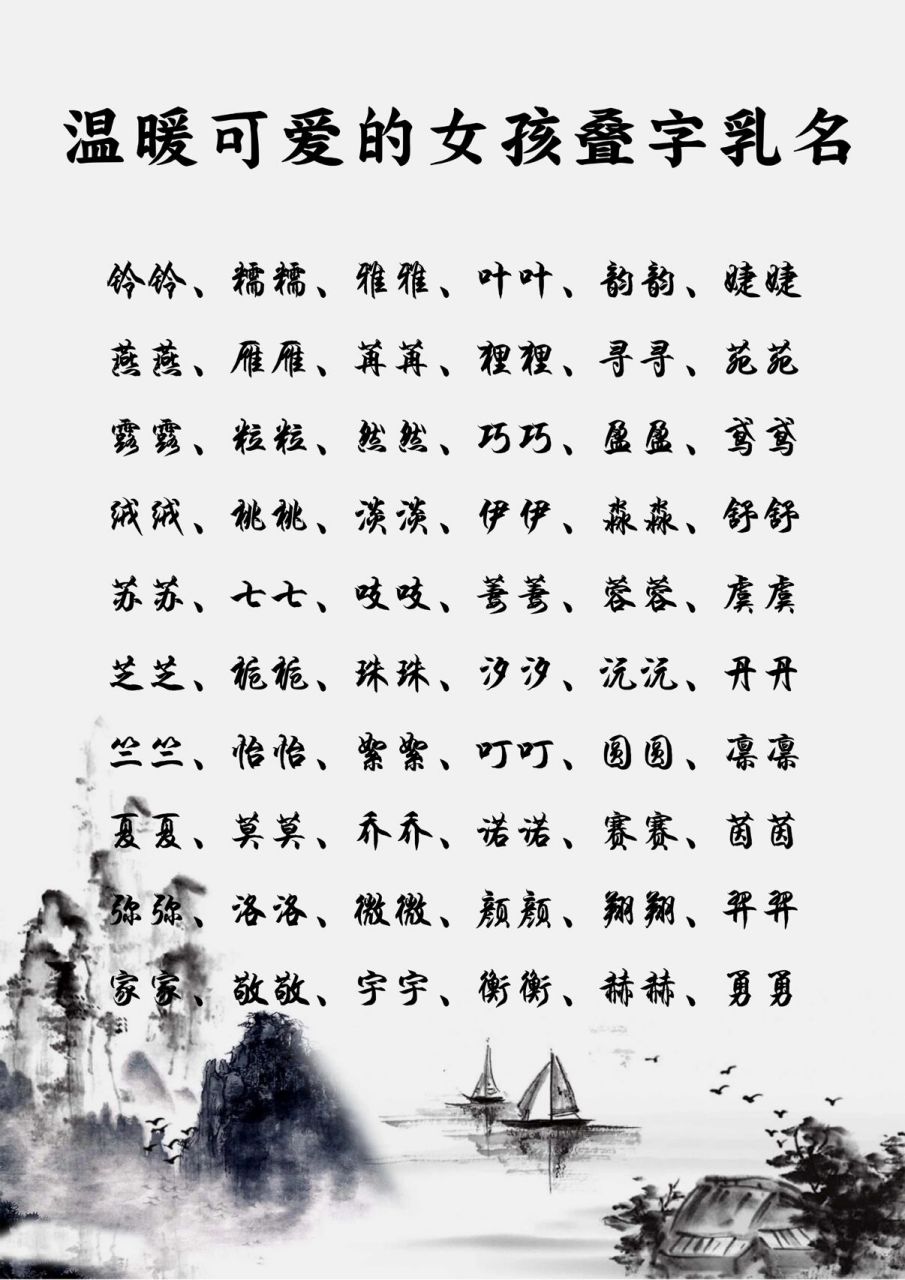 温暖可爱的女孩叠字乳名
铃铃、糯糯、雅雅、叶叶、韵韵、婕婕
燕燕、雁雁、苒苒、狸狸、寻寻、苑苑
露露、粒粒、然然、巧巧、盈盈、鸢鸢
绒绒、桃桃、淡淡、伊伊、淼淼、舒舒
苏苏、七七、吱吱、萋萋、蓉蓉、虞虞
芝芝、栀栀、珠珠、汐汐、沅沅、丹丹
竺竺、怡怡、絮絮、叮叮、圆圆、凛凛
夏夏、莫莫、乔乔、诺诺、赛赛、茵茵
弥弥、洛洛、微微、颜颜、翔翔、羿羿
家家、敬敬、宇宇、衡衡、赫赫、勇勇